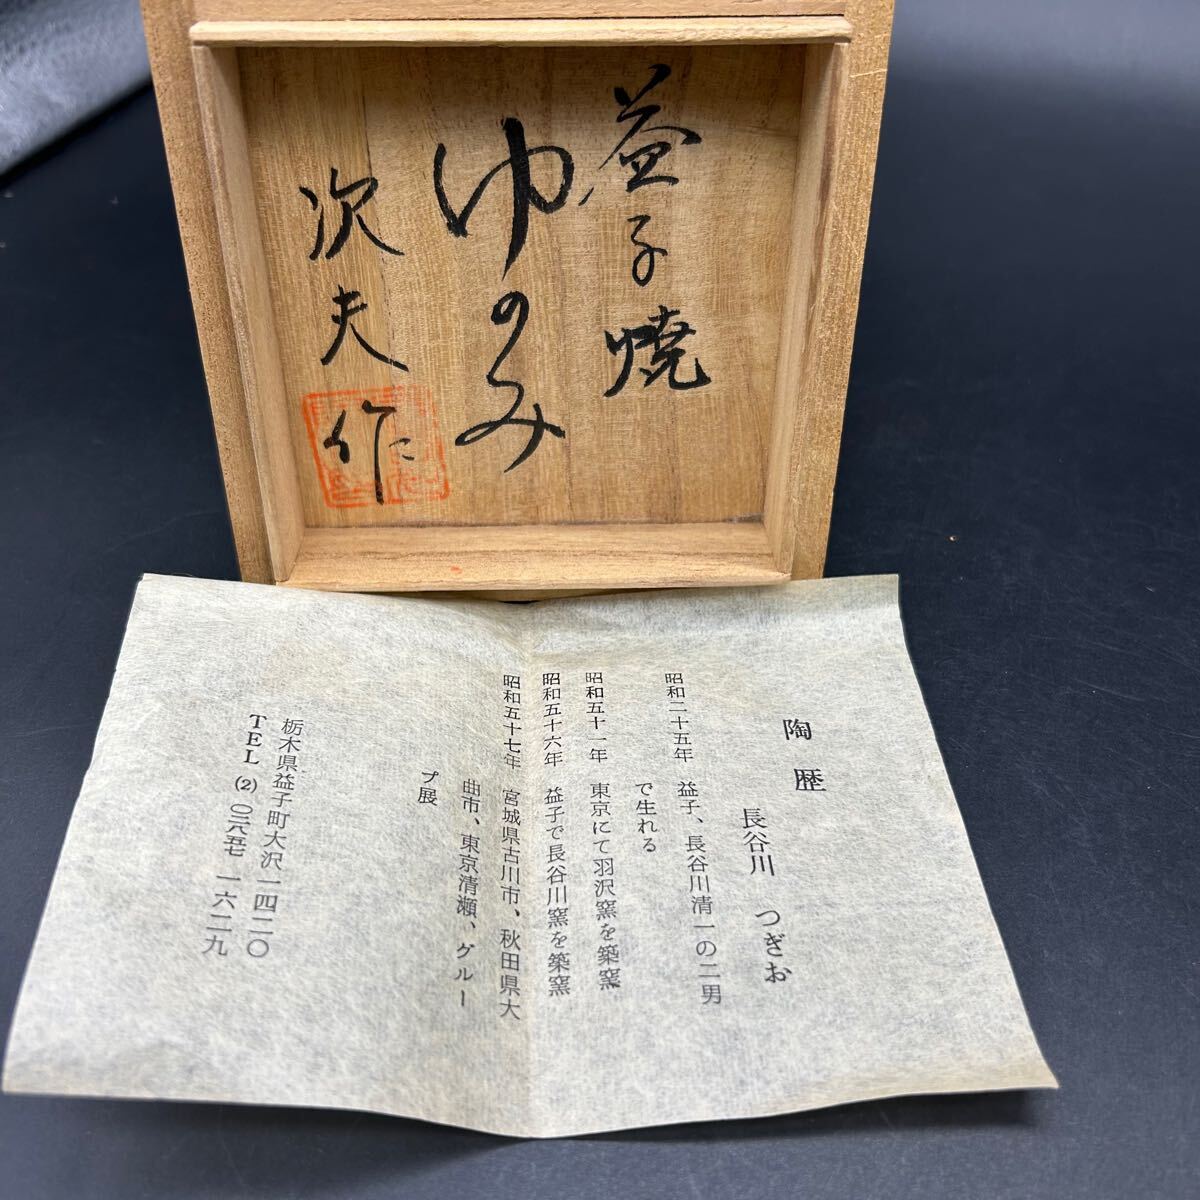 益子焼
ゆのみ
次夫作
陶歴
長谷川 つぎお
昭和二十五年 益子、長谷川清一の二男
で生れる
昭和五十一年 東京にて羽沢窯を築窯
昭和五十六年 益子で長谷川窯を築窯
昭和五十七年 宮城県古川市、秋田県大
曲市、東京清瀬、グルー
プ展
栃木県益子町大沢一四二〇
TEL ⑵ 〇二八五七 一六二九